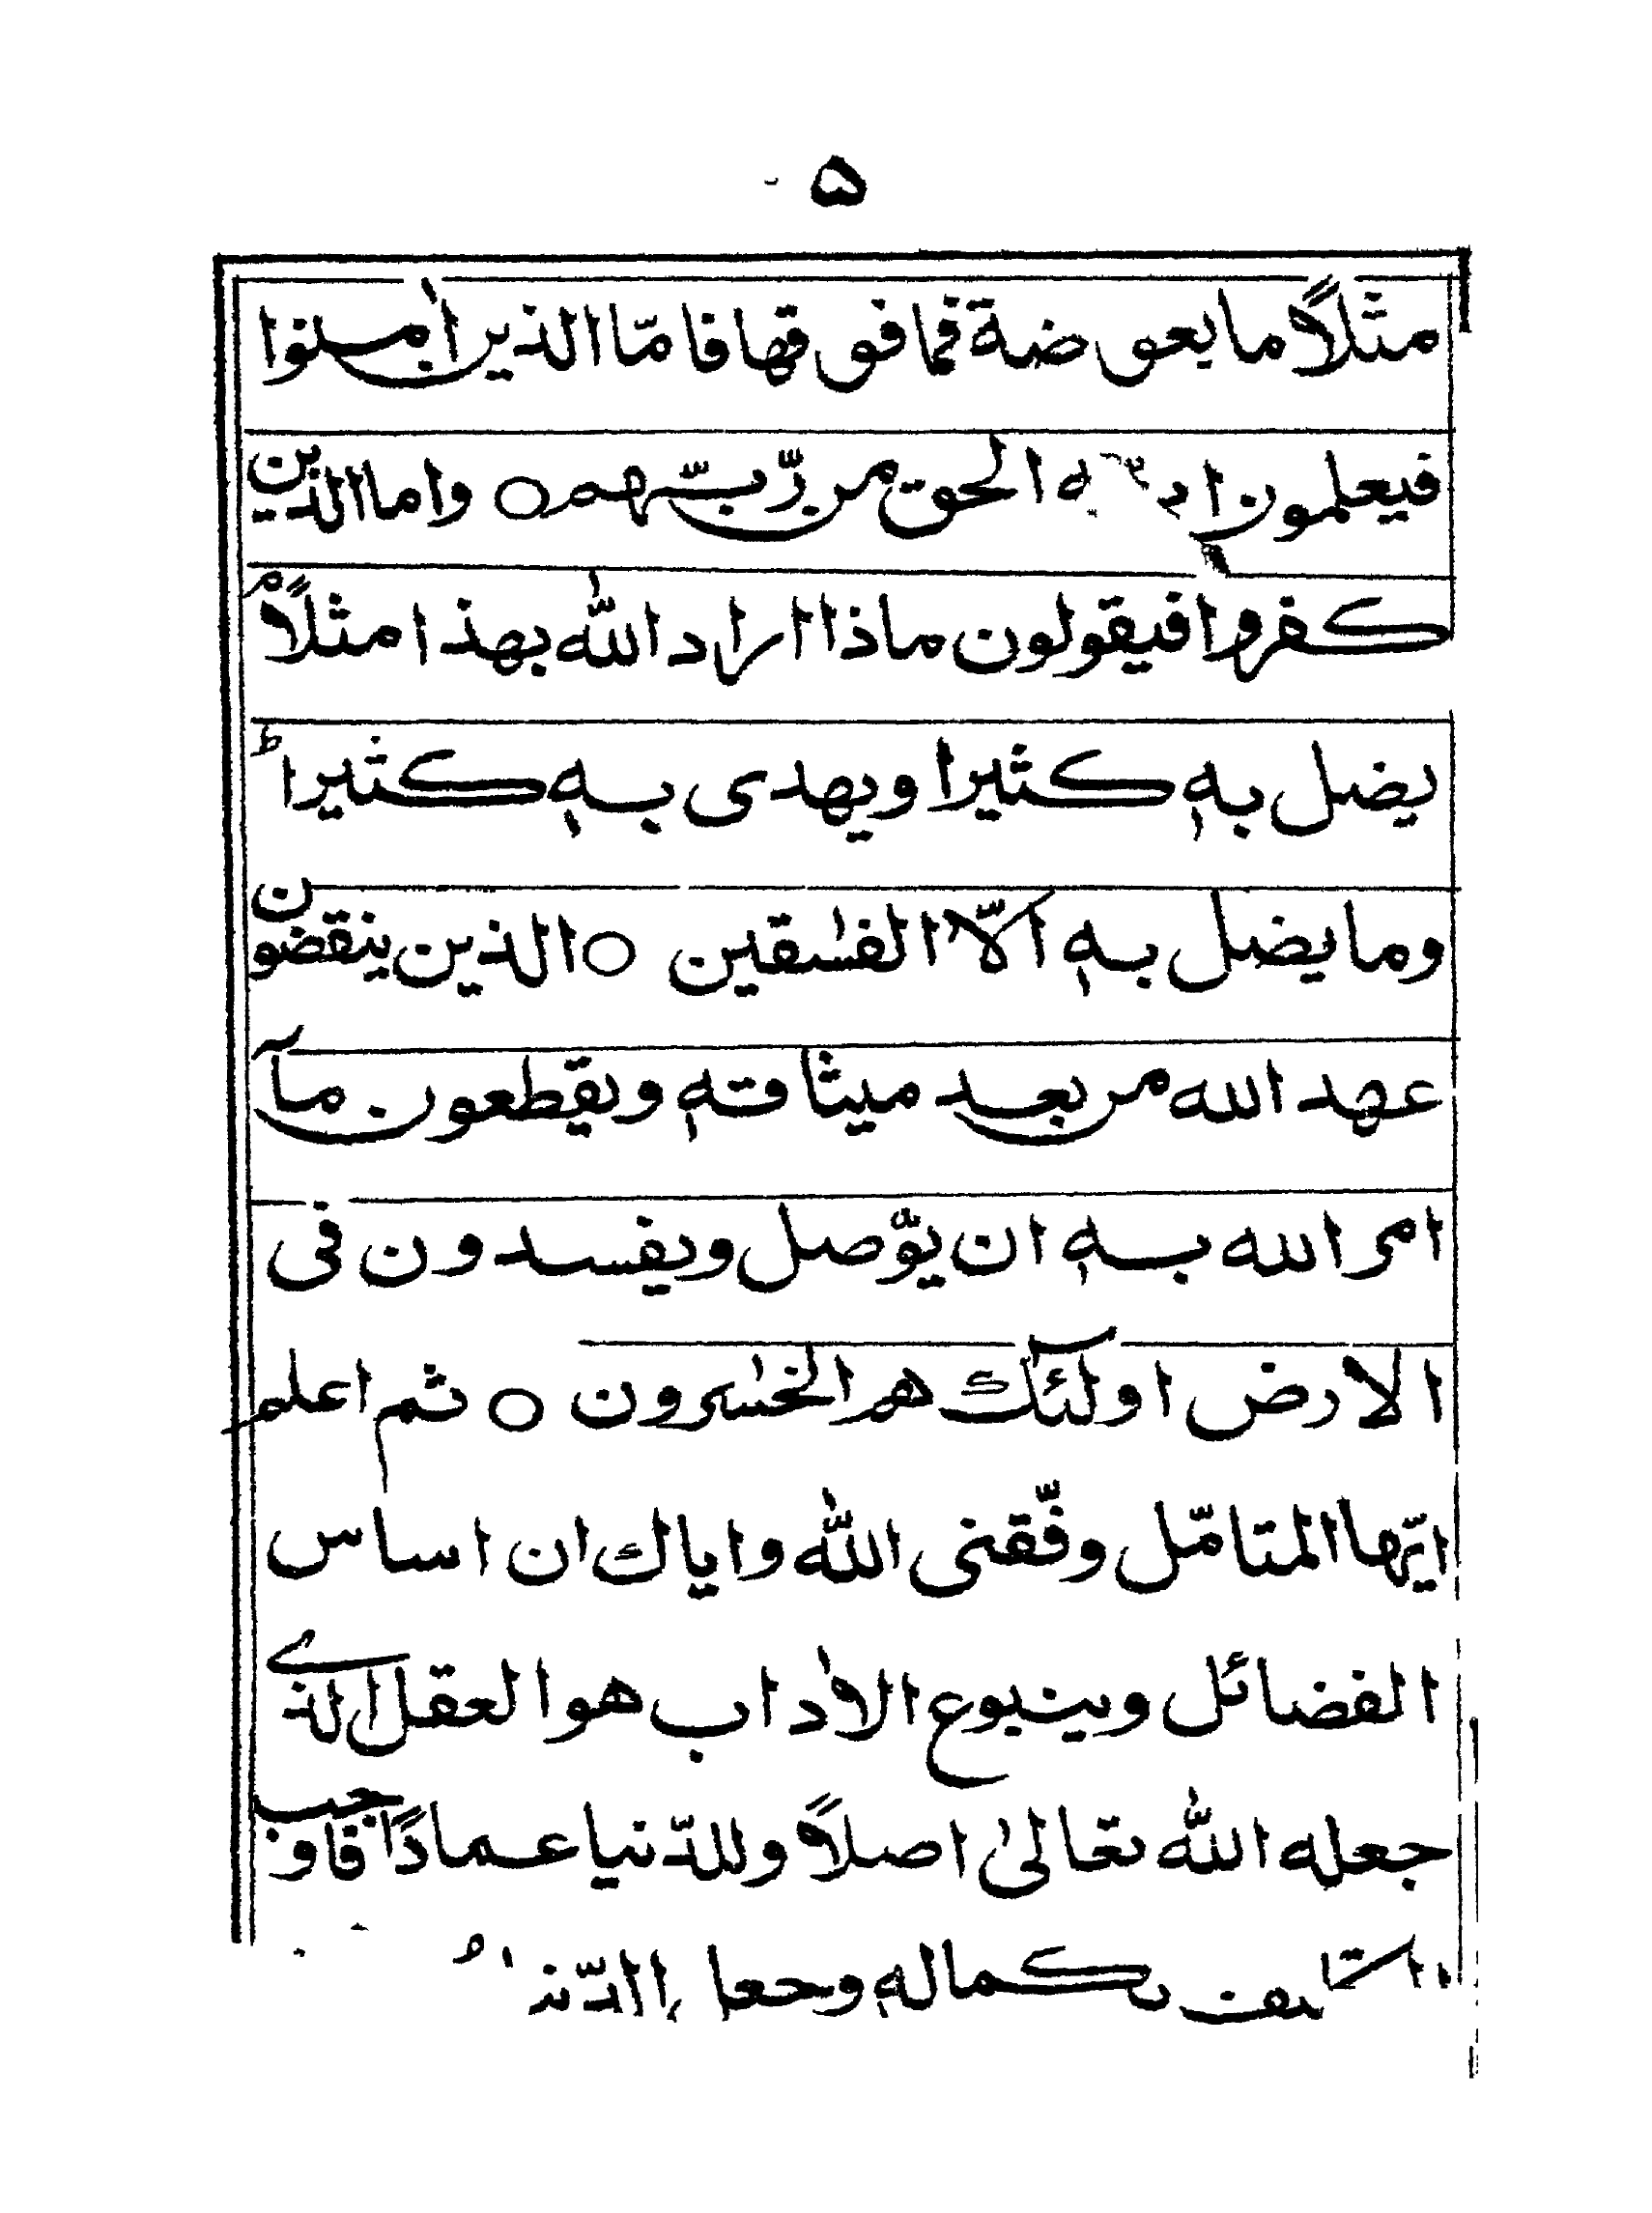 ۵
مثلاً ما بعوضة فما فوقها فامّا الذین اٰمنوا
فیعلمون الحق من رّبّهم ○ واما الذین
کفروا فیقولون ماذا اراد اللّٰه بهذا مثلاًم
یضل به کثیرا ویهدی به کثیرا ط
وما یضل به الّا الفٰسقین ○ الذین ینقضون
عهد الله من بعد میثاقه ویقطعون مآ
امر الله به ان یوّصل ویفسدون فی
الارض اولٰٓئك هم الخٰسرون ○ ثم اعلم
ایّها المتامّل وفّقنی اللّٰه وایاك ان اساس
الفضائل وینبوع الاٰداب هو العقل الذے
جعله اللّٰه تعالیٰ اصلاً وللدّنیا عمادًا فاوجب
بکماله وجعل الدّنیا